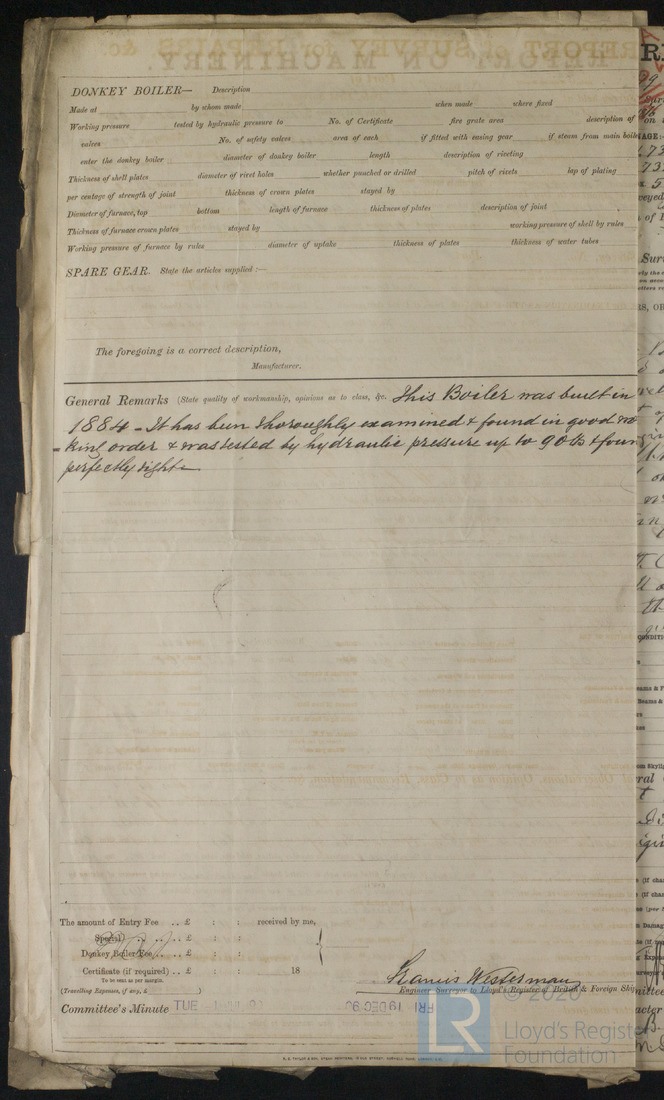 DONKEY BOILER— Description
Made at by whom made when made where fixed
Working pressure tested by hydraulic pressure to No. of Certificate fire grate area description of
valves No. of safety valves area of each if fitted with easing gear if steam from main boile
enter the donkey boiler diameter of donkey boiler length description of riveting
Thickness of shell plates diameter of rivet holes whether punched or drilled pitch of rivets lap of plating
per centage of strength of joint thickness of crown plates stayed by
Diameter of furnace, top bottom length of furnace thickness of plates description of joint
Thickness of furnace crown plates stayed by working pressure of shell by rules
Working pressure of furnace by rules diameter of uptake thickness of plates thickness of water tubes
SPARE GEAR. State the articles supplied :—
The foregoing is a correct description,
Manufacturer.
General Remarks (State quality of workmanship, opinions as to class, &c. This Boiler was built in
1884 – It has been thoroughly examined & found in good wo
-king order & was tested by hydraulic pressure up to 90 lbs & foun
perfectly tight
The amount of Entry Fee .. £ : : received by me,
Special .. .. £ : :
Donkey Boiler Fee .. £ : :
Certificate (if required) .. £ : : 18
To be sent as per margin.
(Travelling Expenses, if any, £ )
Francis Westerman
Engineer Surveyor to Lloyd's Register of British & Foreign Ship
Committee's Minute TUE
FRI 19 DEC 90
© 2020
LR
Lloyd's Registe
Foundation